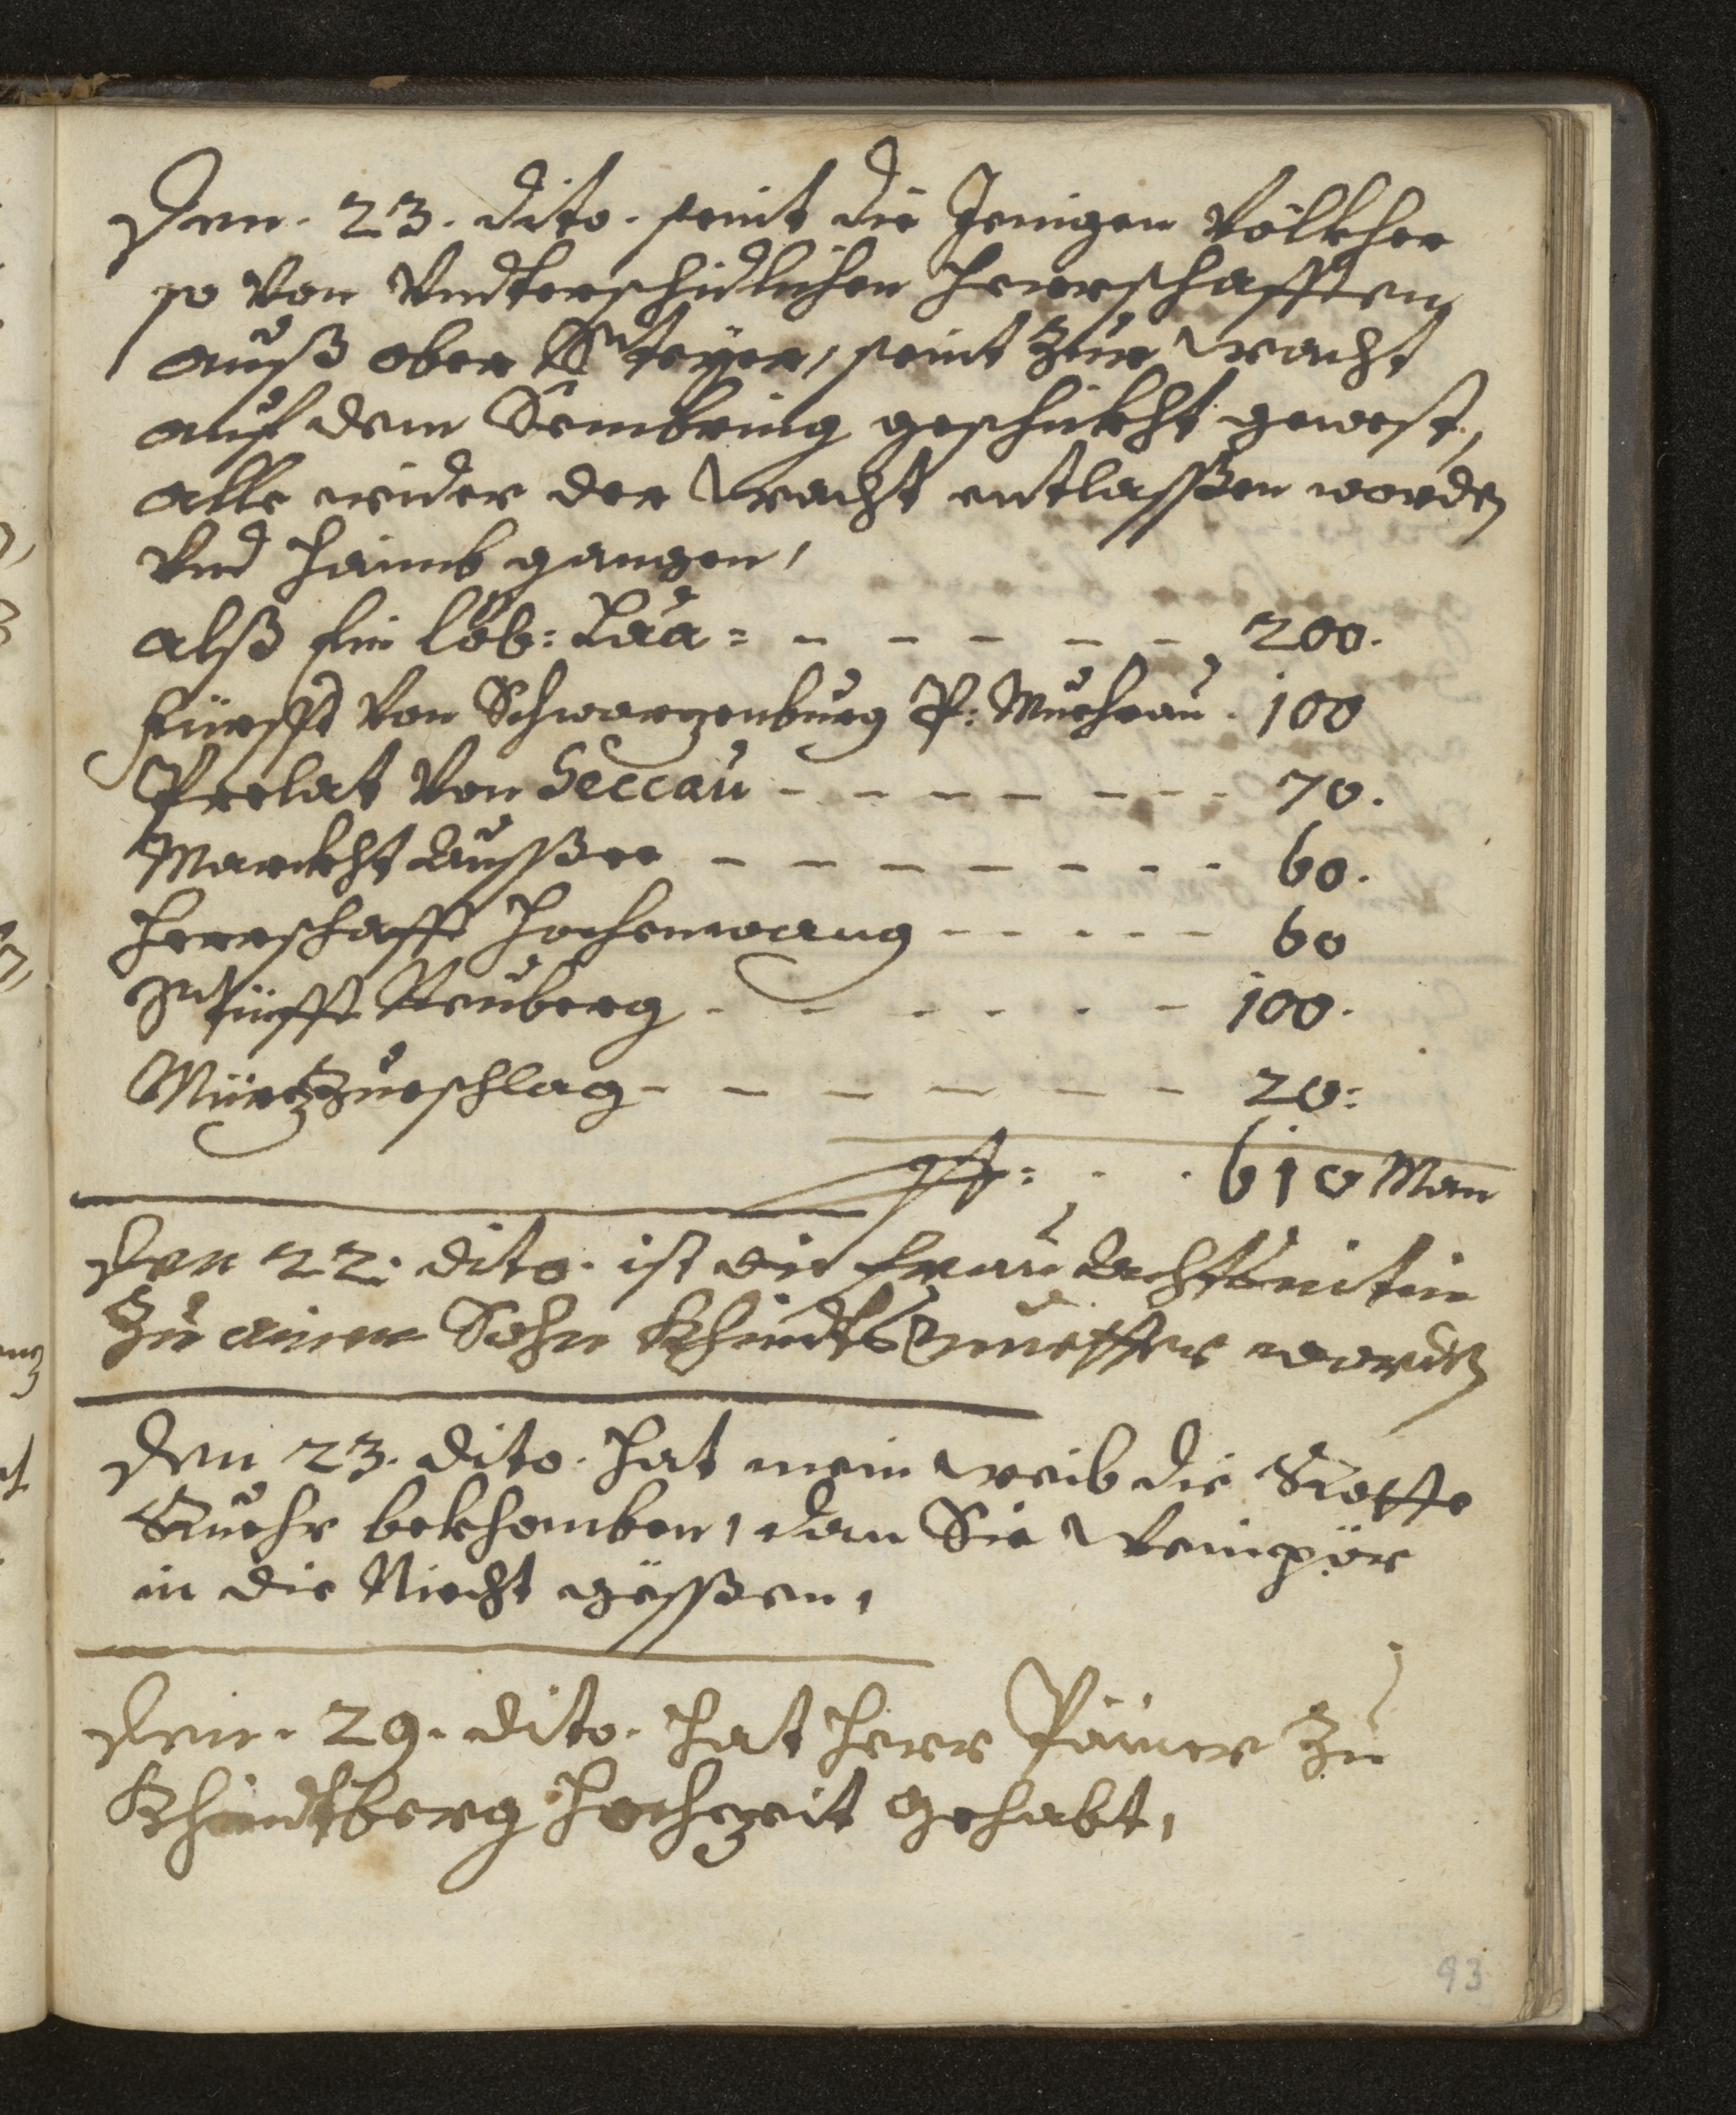 Den. 23. dito. seint die Jenigen Völkher
so von Vndterschidlichen Herrschafften
auß ober Steyer, seint zur wacht
auf dem Sembring geschikht gewest,
alle wider der wacht entlasßen worden
vnd haimb gangen,
alß ein löb: Laa = 200.
fürsst von Schwarzenburg P: Muehrau. 100
Prelat von Seccau 70.
Marckht Aussßee 60.
Herrschafft Hochenwang 60
Stüfft Neuberg 100.
Mürzzueschlag 20:
610 Man
Den 22: dito. ist die frau
zu ainen Sohn Khindtsmuetter worden
Den 23. dito. hat mein weib die Rotte
Ruehr bekhomben, dan Sie Weinpör
in die Niecht gësßen,
Den. 29. dito. hat Herr Päurer zu
Khindtberg Hochzeit gehabt,
93